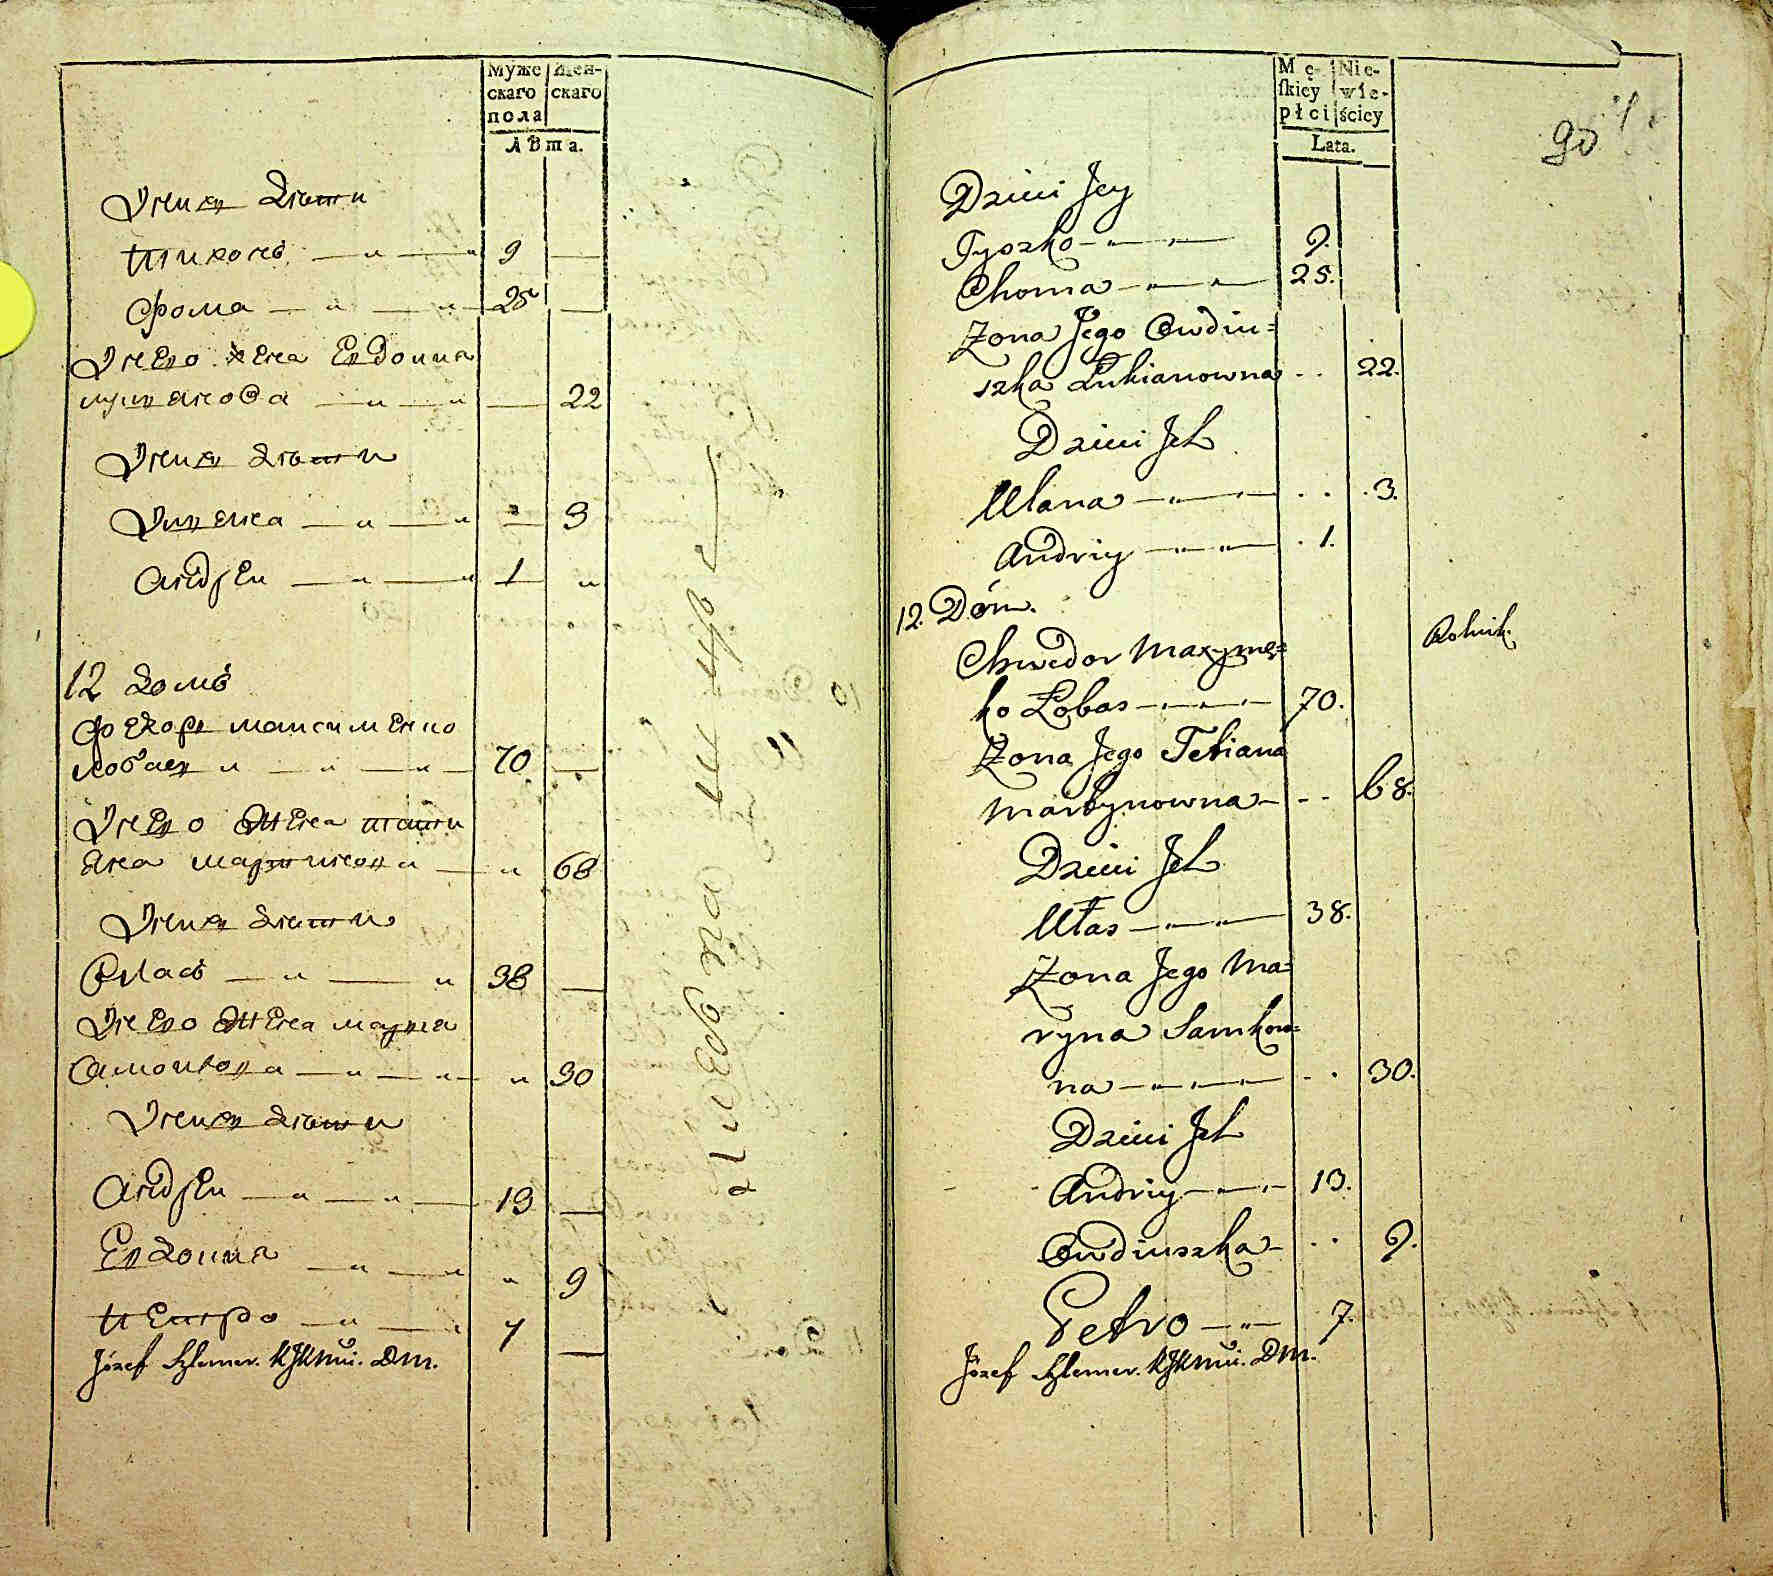 Мужескаго пола
Женскаго
Лѣта.
Ихъ дѣти
Тихонъ 9
Фома 25
Его жена Евдокия
Лукянова 22
Ихъ дѣти
Уляна 3
Андрей 1
12 домъ
Федоръ Максименко
Лобасъ 70
Его жена Татияна
Мартинова 68
Ихъ дѣти
Власъ 38
Его жена Марина
Самойлова 30
Ихъ дѣти
Андрей 13
Евдокия 9
Петро 7
Józef DM.
Męskiey płci
Niewieściey
Lata.
90
Dzieci Jey
Tyszko 9.
Choma 25.
Żona Jego Owdiu=
szka Lukianowna 22.
Dzieci Jch
Ulana 3.
Andriy 1.
12. Dóm.
Chwedor Maxymę=
ko Łobas 70.
Rolnik.
Żona Jego Tetiana
Martynowna 68.
Dzieci Jch
Ułas 38.
Żona Jego Ma=
ryna Samkow=
na 30.
Dzieci Jch
Andriy 13.
Owdiuszka 9.
Petro 7.
Józef DM.